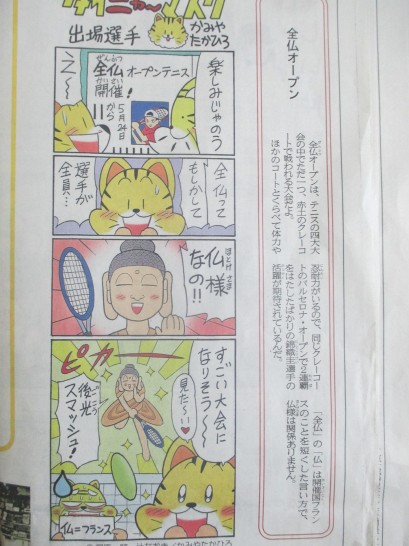 出場選手
かみや
たかひろ
楽しみじゃのう
ぜんふつ
全仏オープンテニス
かいさい
開催!
5月24日
から
え〜
全仏って
もしかして
選手が
全員…
ほとけさま
仏様
なの!!
すごい大会に
なりそう〜
見た〜い♥
ピカー
ごこう
後光
スマッシュ!
仏=フランス
全仏オープン
全仏オープンは、テニスの四大大
会の中でただ一つ、赤土のクレーコ
ートで戦われる大会だよ。
ほかのコートとくらべて体力や
忍耐力がいるので、同じクレーコー
トのバルセロナ・オープンで2連覇
をはたしたばかりの錦織圭選手の
活躍が期待されているんだ。
「全仏」の「仏」は開催国フラン
スのことを短くした言い方で、
仏様は関係ありません。